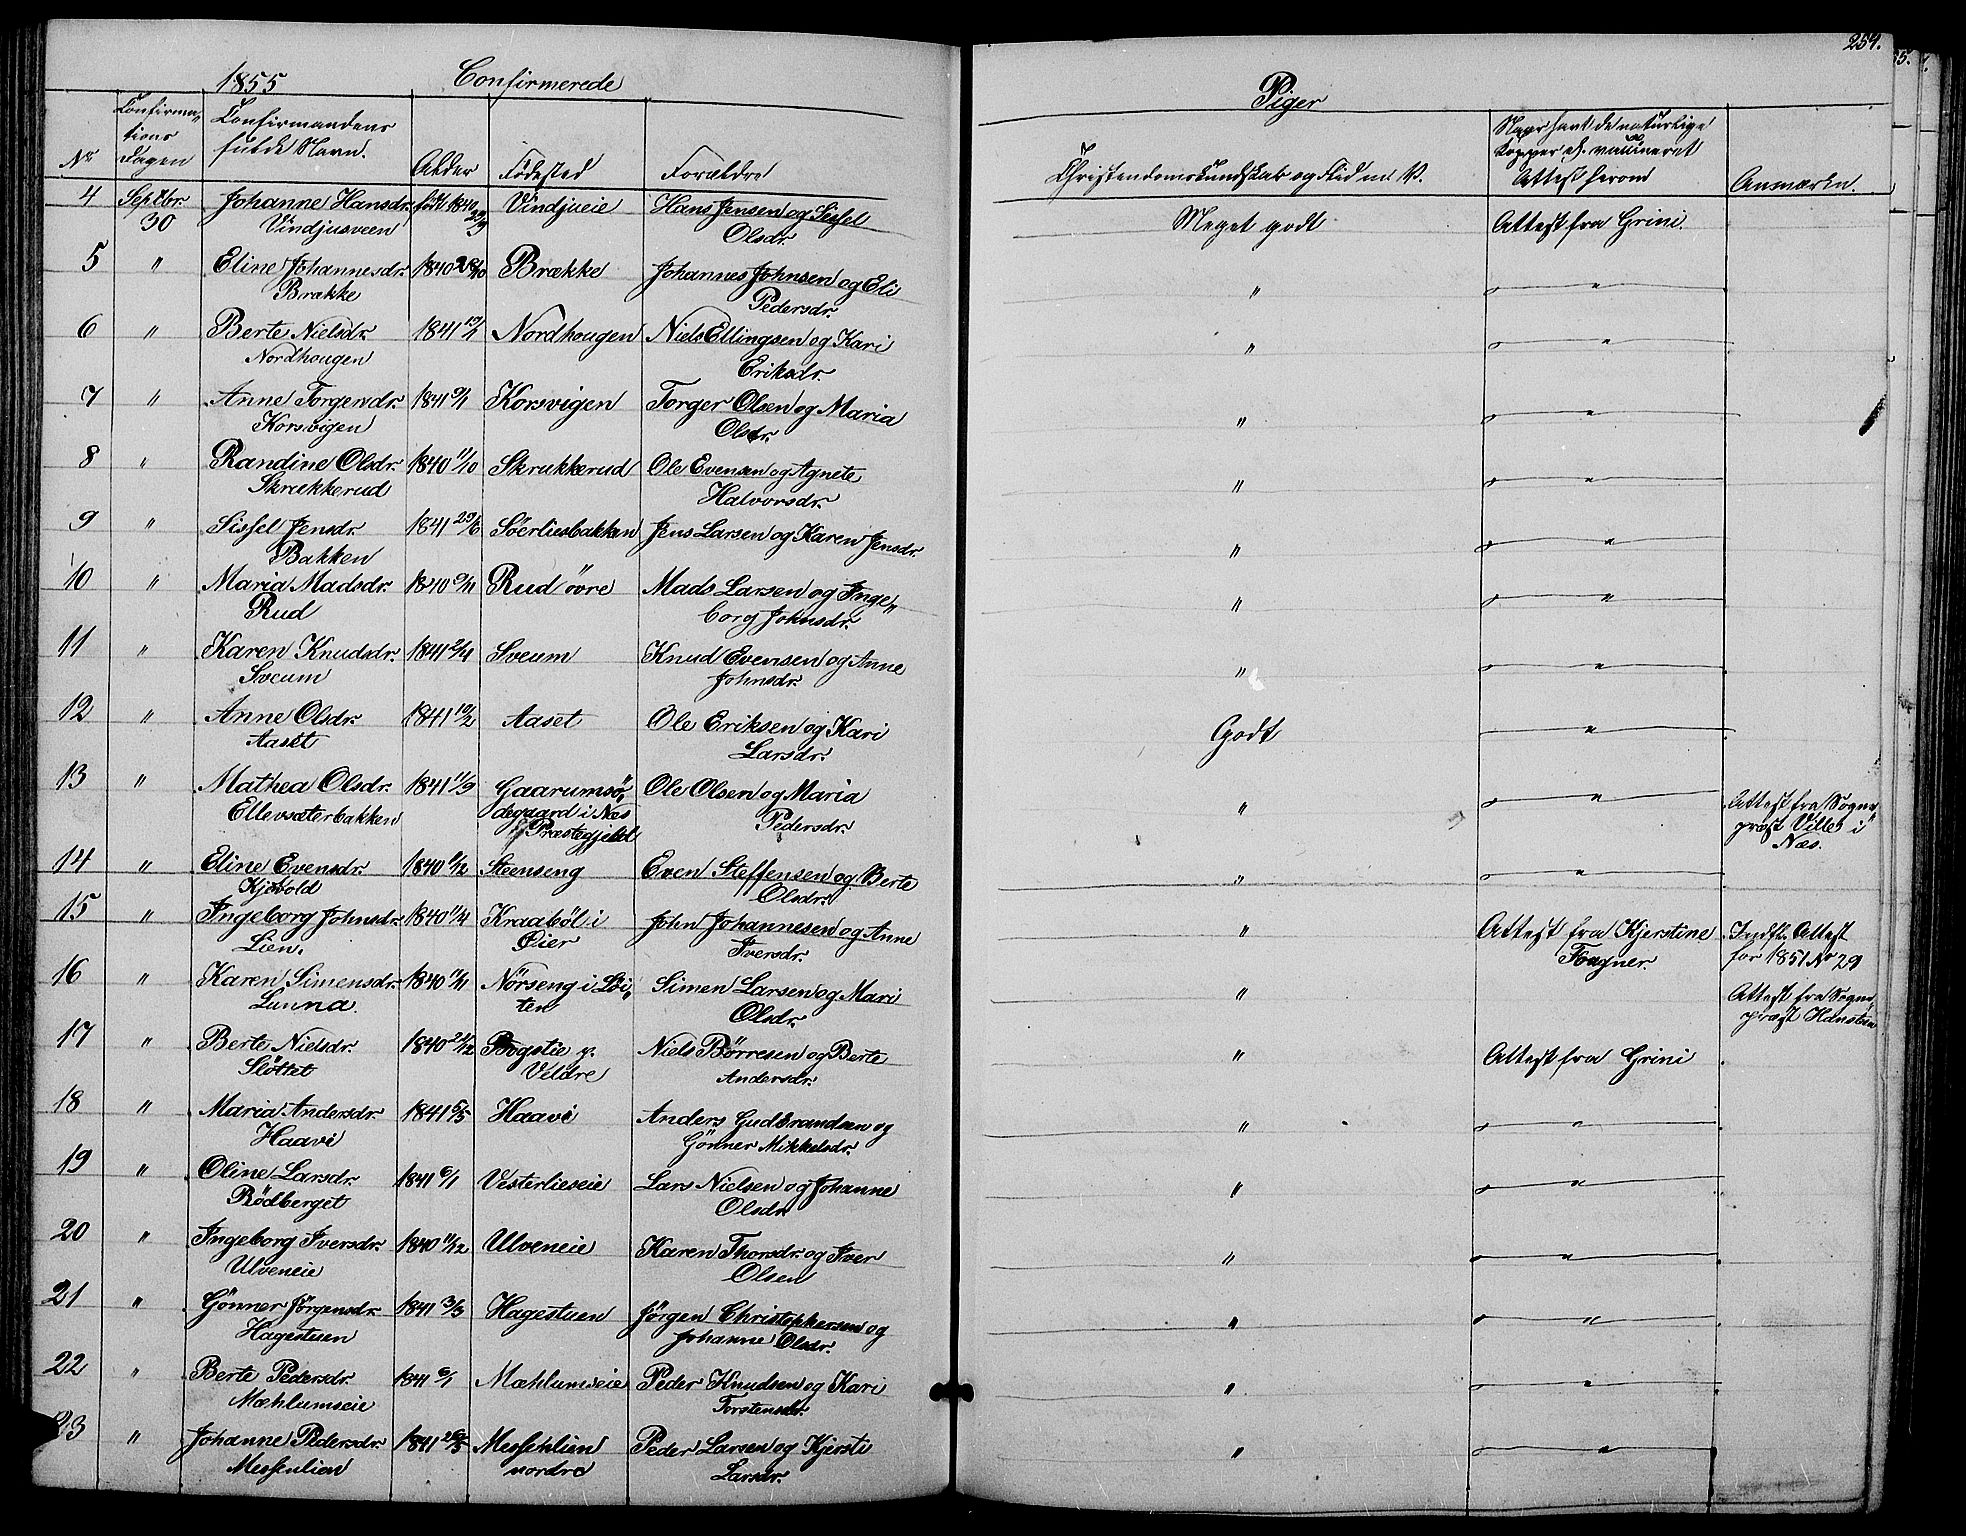 1855 Confirmerede
Piger
254.
Nr Confirma„tions Dagen Confirmandens fulde Navn. Alder Födested Forældre Christendomskundskab og Flid m. V. Naar havt de naturlige Kopper el. vaccineret Attest herom Anmærkn.
4 Septbr. 30 Johanne Hansdr. Vindjusveen født 1840 23/9 Vindjueie Hans Jensen og Sissel Olsdr. Meget godt Attest fra Grini.
5 " Eline Johannesdr. Brække 1840 28/10 Brække Johannes Johnsen og Eli Pedersdr. " "
6 " Berte Nielsdr. Nordhougen 1841 Nordhougen Niels Ellingsen og Kari Eriksdr. " "
7 " Anne Torgersdr. Korsvigen 1841 Korsvigen Torger Olsen og Maria Olsdr. " "
8 " Randine Olsdr. Skrukkerud 1840 11/10 Skrukkerud Ole Evensen og Agnete Halvorsdr. " "
9 " Sissel Jensdr. Bakken 1841 29/6 Söerliesbakken Jens Larsen og Karen Jensdr. " "
10 " Maria Madsdr. Rud 1840 Rud övre Mads Larsen og Inge„borg Johnsdr. " "
11 " Karen Knudsdr. Sveum 1841 Sveum Knud Evensen og Anne Johnsdr. " "
12 " Anne Olsdr. Aaset 1841 10/2 Aaset Ole Eriksen og Kari Larsdr. Godt "
13 " Mathea Olsdr. Ellevsæterbakken 1841 11/9 Gaarumsö„degaard i Næs Præstegjeld Ole Olsen og Maria Pedersdr. " " Attest fra Sogne„præst Ville i Næs.
14 " Eline Evensdr. Kjosvold 1840 Steenseng Even Steffensen og Berte Olsdr. " "
15 " Ingeborg Johnsdr. Lien. 1840 11/4 Kraaböl i Öier John Johannesen og Anne Iversdr. " Attest fra Kjerstine Fougner. Indfl. Attest for 1851 No 29
16 " Karen Simensdr. Lunna. 1840 11/11 Nörseng i Löi„ten Simen Larsen og Mari Olsdr. " Attest fra Sogne„præst Hansteen
17 " Berte Nielsdr. Slöttet 1840 21/12 Bogstie p. Veldre Niels Börresen og Berte Andersdr. " Attest fra Grini
18 " Maria Andersdr. Haavi 1841 5/5 Haavi Anders Gudbrandsen og Gönner Mikkelsdr. " "
19 " Oline Larsdr. Rödberget 1841 6/1 Vesterlieseie Lars Nielsen og Johanne Olsdr. " "
20 " Ingeborg Iversdr. Ulveneie 1840 11/12 Ulveneie Karen Thorsdr. og Iver Olsen " "
21 " Gönner Jörgensdr. Hagestuen 1841 3/3 Hagestuen Jörgen Christophersen og Johanne Olsdr. " "
22 " Berte Pedersdr. Mæhlumseie 1841 6/1 Mæhlumseie Peder Knudsen og Kari Torstensdr. " "
23 " Johanne Pedersdr. Messenlien 1841 Messenlien nordre Peder Larsen og Kjersti Larsdr. " "